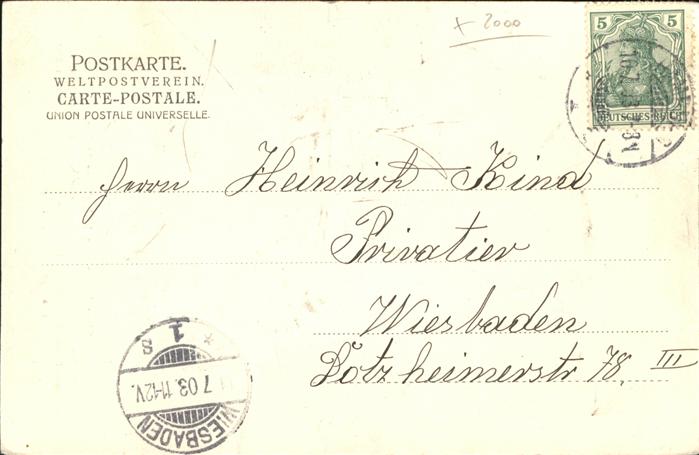 + 2000
5 5
DEUTSCHES REICH
POSTKARTE.
WELTPOSTVEREIN.
CARTE-POSTALE.
UNION POSTALE UNIVERSELLE.
Herrn Heinrich Kind
Privatier
Wiesbaden
Dotzheimerstr 78. III
* 1 s
7 03. 11-12V.
WIESBADEN